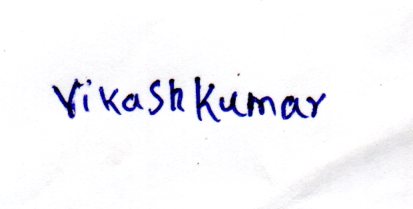 Vikash Kumar